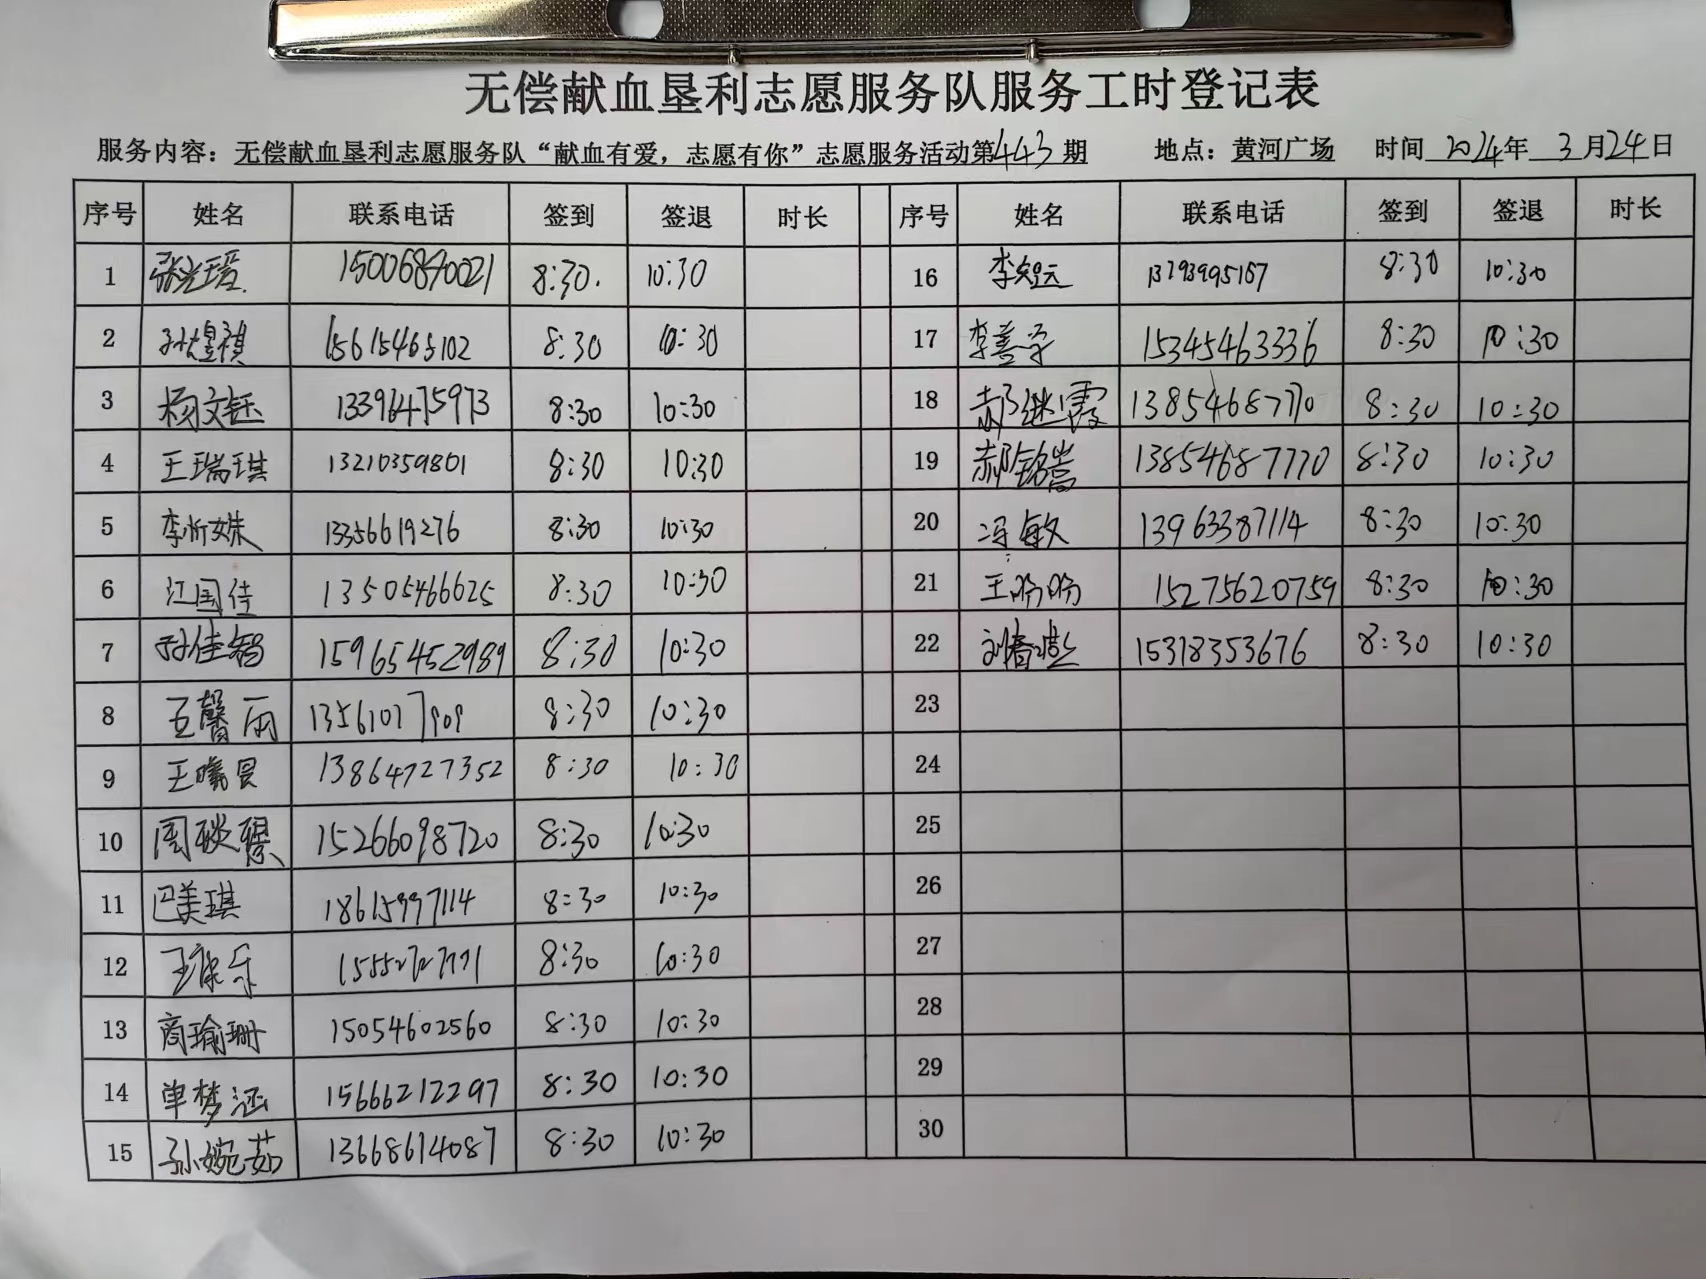 无偿献血垦利志愿服务队服务工时登记表
服务内容：无偿献血垦利志愿服务队“献血有爱，志愿有你”志愿服务活动第443期 地点：黄河广场 时间 2024年 3月24日
序号 姓名 联系电话 签到 签退 时长 序号 姓名 联系电话 签到 签退 时长
1 15006840021 8:30. 10:30 16 李知远 13793995167 8:30 10:30
2 孙煜祺 15615465102 8:30 10:30 17 李善学 15345463336 8:30 10:30
3 杨文钰 13396475973 8:30 10:30 18 郝继霞 13854687770 8:30 10:30
4 王瑞琪 13210359801 8:30 10:30 19 郝铭嵩 13854687770 8:30 10:30
5 李忻姝 13356619276 8:30 10:30 20 冯敏 13963387114 8:30 10:30
6 江国佳 13505466625 8:30 10:30 21 王盼盼 15275620759 8:30 10:30
7 孙佳智 15965452989 8:30 10:30 22 15318353676 8:30 10:30
8 王馨雨 13561077909 8:30 10:30 23
9 王曦晨 13864727352 8:30 10:30 24
10 周 15266098720 8:30 10:30 25
11 巴美琪 18615997114 8:30 10:30 26
12 王康乐 8:30 10:30 27
13 商瑜珊 15054602560 8:30 10:30 28
14 单梦涵 15666212297 8:30 10:30 29
15 孙婉茹 13668614087 8:30 10:30 30